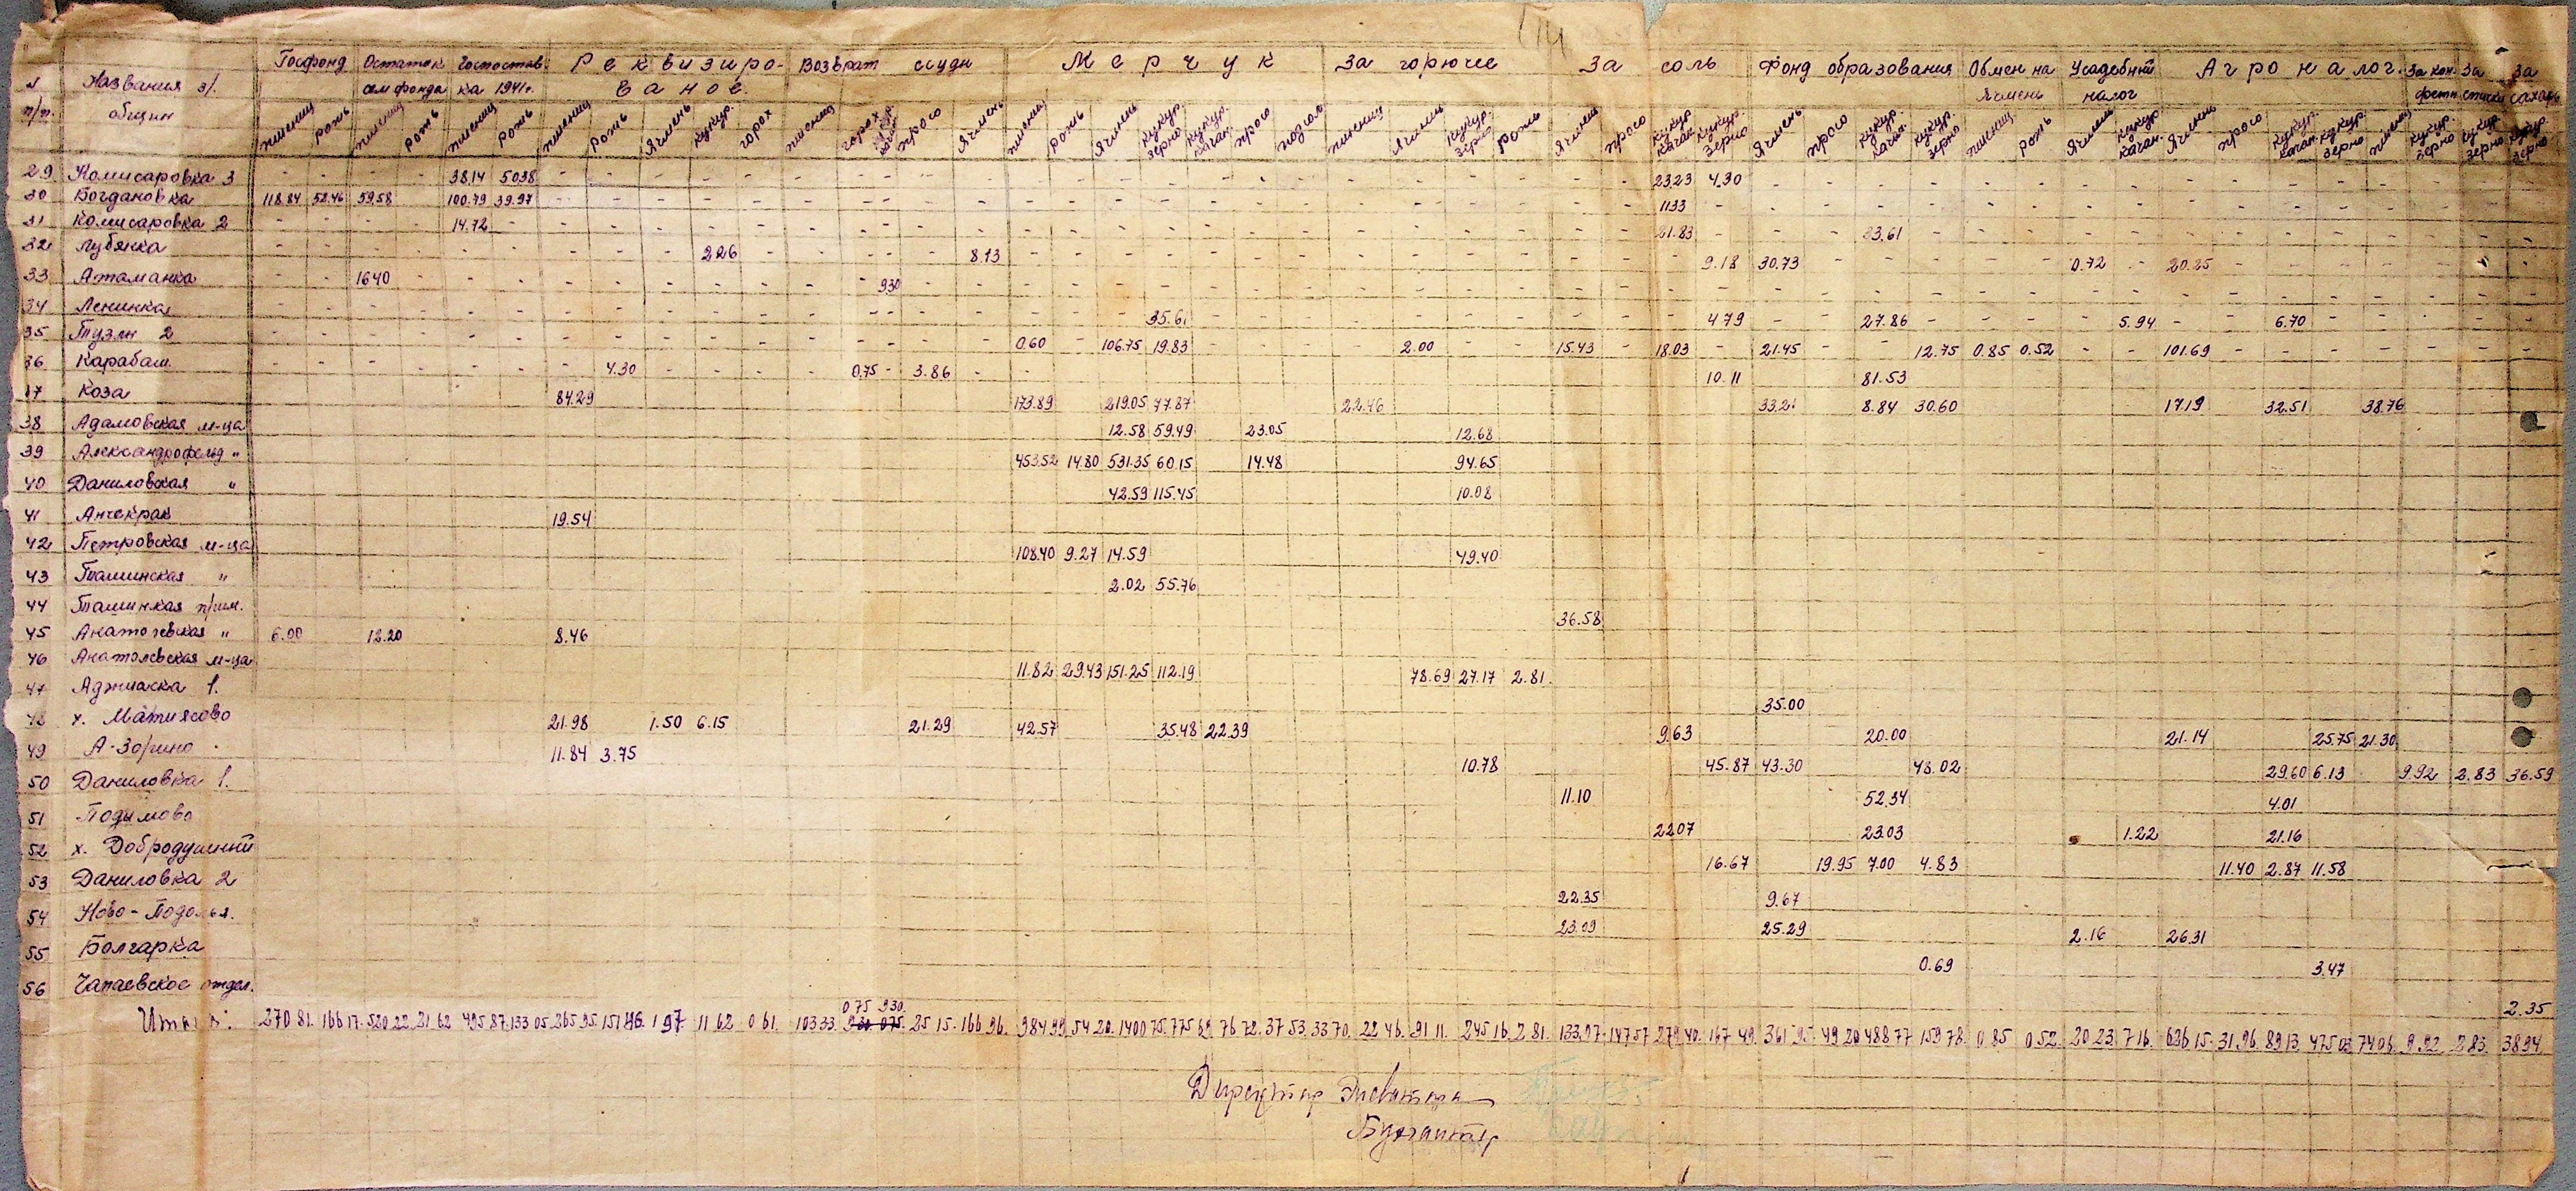 114
N п/п. Названия з/. общин Госфонд Остаток семфонда Госпоставка 1941г. Реквизированое. Возврат ссуды Мерчук За горючее За соль Фонд образования Обмен на Ячмень Усадебный налог Агроналог. За кон. фетн За спички За сахар
пшениц рожь пшениц рожь пшениц рожь пшениц рожь ячмень кукур. горох пшениц горох просо ячмень пшениц рожь ячмень кукур. зерно кукур. качан. просо пшениц ячмень кукур. зерно рожь ячмень просо кукур. качан кукур. зерно ячмень просо кукур. качан. кукур. зерно пшениц. рожь ячмень кукур. качан. ячмень просо кукур. качан. кукур. зерно пшениц кукур. зерно кукур. зерно кукур. зерно
29 Комисаровка 3 - - - - 38.14 50.38 - - - - 23.23 4.30 - - -
30 Богдановка 118.84 52.46 59.58 100.79 39.97 - - - 11.33 - - -
31 Комисаровка 2 - - - - 14.72 - - - - 21.83 - - - 23.61 - - -
32 Лубянка - - - 2.26 - - - 8.13 - - - 9.18 30.73 - - - 0.72 - 20.25 - - -
33 Атаманка - - 16.40 - - - 9.30 - - -
34 Ленинка - - - 35.61 - - - 4.79 - - 27.86 - - - 5.94 - - 6.70 - - -
35 Тузлы 2 - - - 0.60 - 106.75 19.83 - - - 2.00 - - 15.43 - 18.03 - 21.45 - - 12.75 0.85 0.52 - - 101.69 - - -
36 Карабаш. - - - 4.30 - - - 0.75 - 3.86 - - 10.11 81.53
37 Коза 84.29 173.89 219.05 77.87 22.46 33.21 8.84 30.60 17.19 32.51 38.76
38 Адамовская м-ца 12.58 59.49 23.05 12.68
39 Александрофельд " 453.52 14.80 531.35 60.15 14.48 94.65
40 Даниловская " 42.59 115.45 10.08
41 Анчекрак 19.54
42 Петровская м-ца 108.40 9.27 14.59 49.40
43 Ташинская " 2.02 55.76
44 Ташинкая п/им. 36.58
45 Анатолевская " 6.00 12.20 8.46
46 Анатолевская м-ца 11.82 29.43 151.25 112.19 78.69 27.17 2.81
47 Аджиаска 1. 35.00
48 х. Матиясово 21.98 1.50 6.15 21.29 42.57 35.48 22.39 9.63 20.00 21.14 25.75 21.30
49 А-Зорино 11.84 3.75 10.78 45.87 43.30 48.02 29.60 6.13 9.92 2.83 36.59
50 Даниловка 1. 11.10 52.34 4.01
51 Подымово 22.07 23.03 1.22 21.16
52 х. Добродушный 16.67 19.95 7.00 4.83 11.40 2.87 11.58
53 Даниловка 2 22.35 9.67
54 Ново-Подолья. 23.09 25.29 2.16 26.31
55 Болгарка 0.69 3.47
56 Чапаевское отдел. 2.35
0 75 9 30
Итого: 270 81. 166 17. 520 22. 21 62 495 87. 133 05. 265 95. 1 97 11 62 0 61. 103 33. 25 15. 166 96. 984 99. 54 20. 1400 75. 775 69. 76 72. 37 53. 33 70. 22 46. 91 11. 245 16. 2 81. 133.97. 147 57 279 40. 167 49. 361 95. 49 20 488 77 159 78. 0 85 0 52. 20 23. 7 16. 626 15. 31 96. 89 13. 475 03 74 06. 9.92. 2 83. 38 94.
Директор Элеватора
Бухгалтер